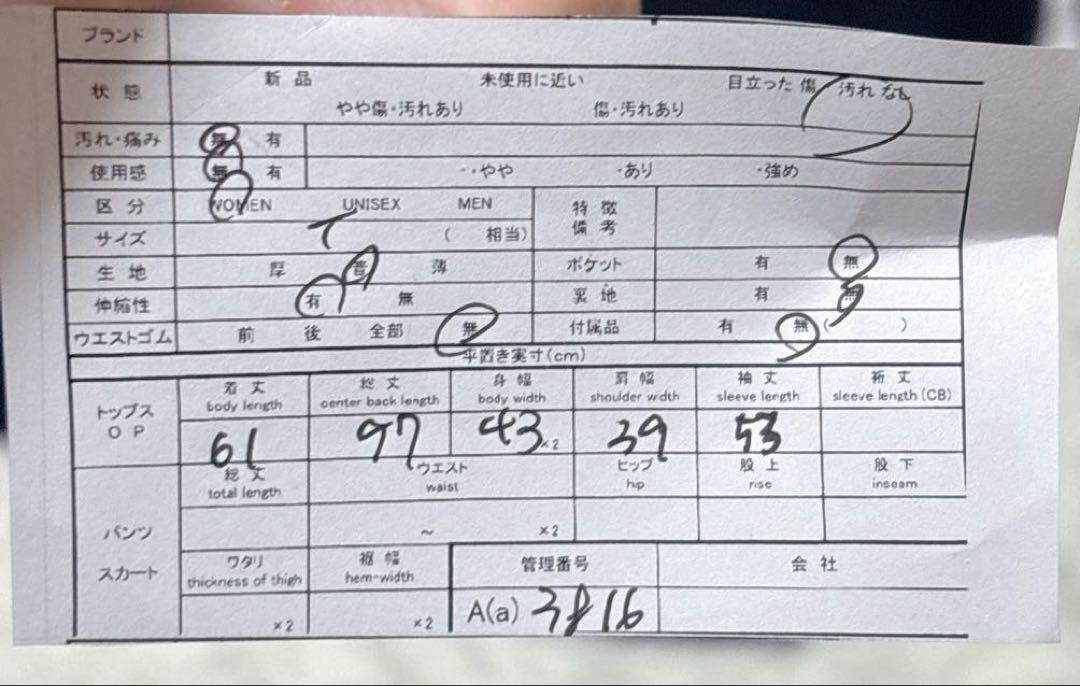 ブランド
状態 新品 未使用に近い 目立った傷 汚れなし
やや傷・汚れあり 傷・汚れあり
汚れ・痛み 無 有
使用感 無 有 ・やや ・あり ・強め
区分 WOMEN UNISEX MEN 特徴
備考
サイズ ( 相当)
生地 厚 普 薄 ポケット 有 無
伸縮性 有 無 裏地 有 無
ウエストゴム 前 後 全部 無 付属品 有 無 ( )
平置き実寸(cm)
トップス
OP
着丈 総丈 身幅 肩幅 袖丈 裄丈
body length center back length body width shoulder width sleeve length sleeve length(CB)
61 97 43×2 39 53
パンツ
スカート
総丈 ウエスト ヒップ 股上 股下
total length waist hip rise inseam
～ ×2
ワタリ 裾幅 管理番号 会社
thickness of thigh hem-width
×2 ×2 A(a) 3816